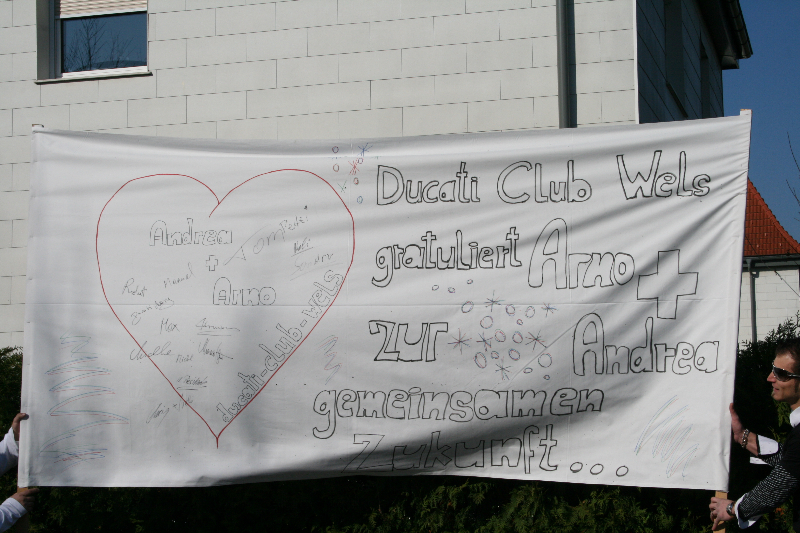 Ducati Club Wels
gratuliert Arno +
zur Andrea
gemeinsamen
Zukunft...
Andrea
+
Arno
ducati-club-wels
Max